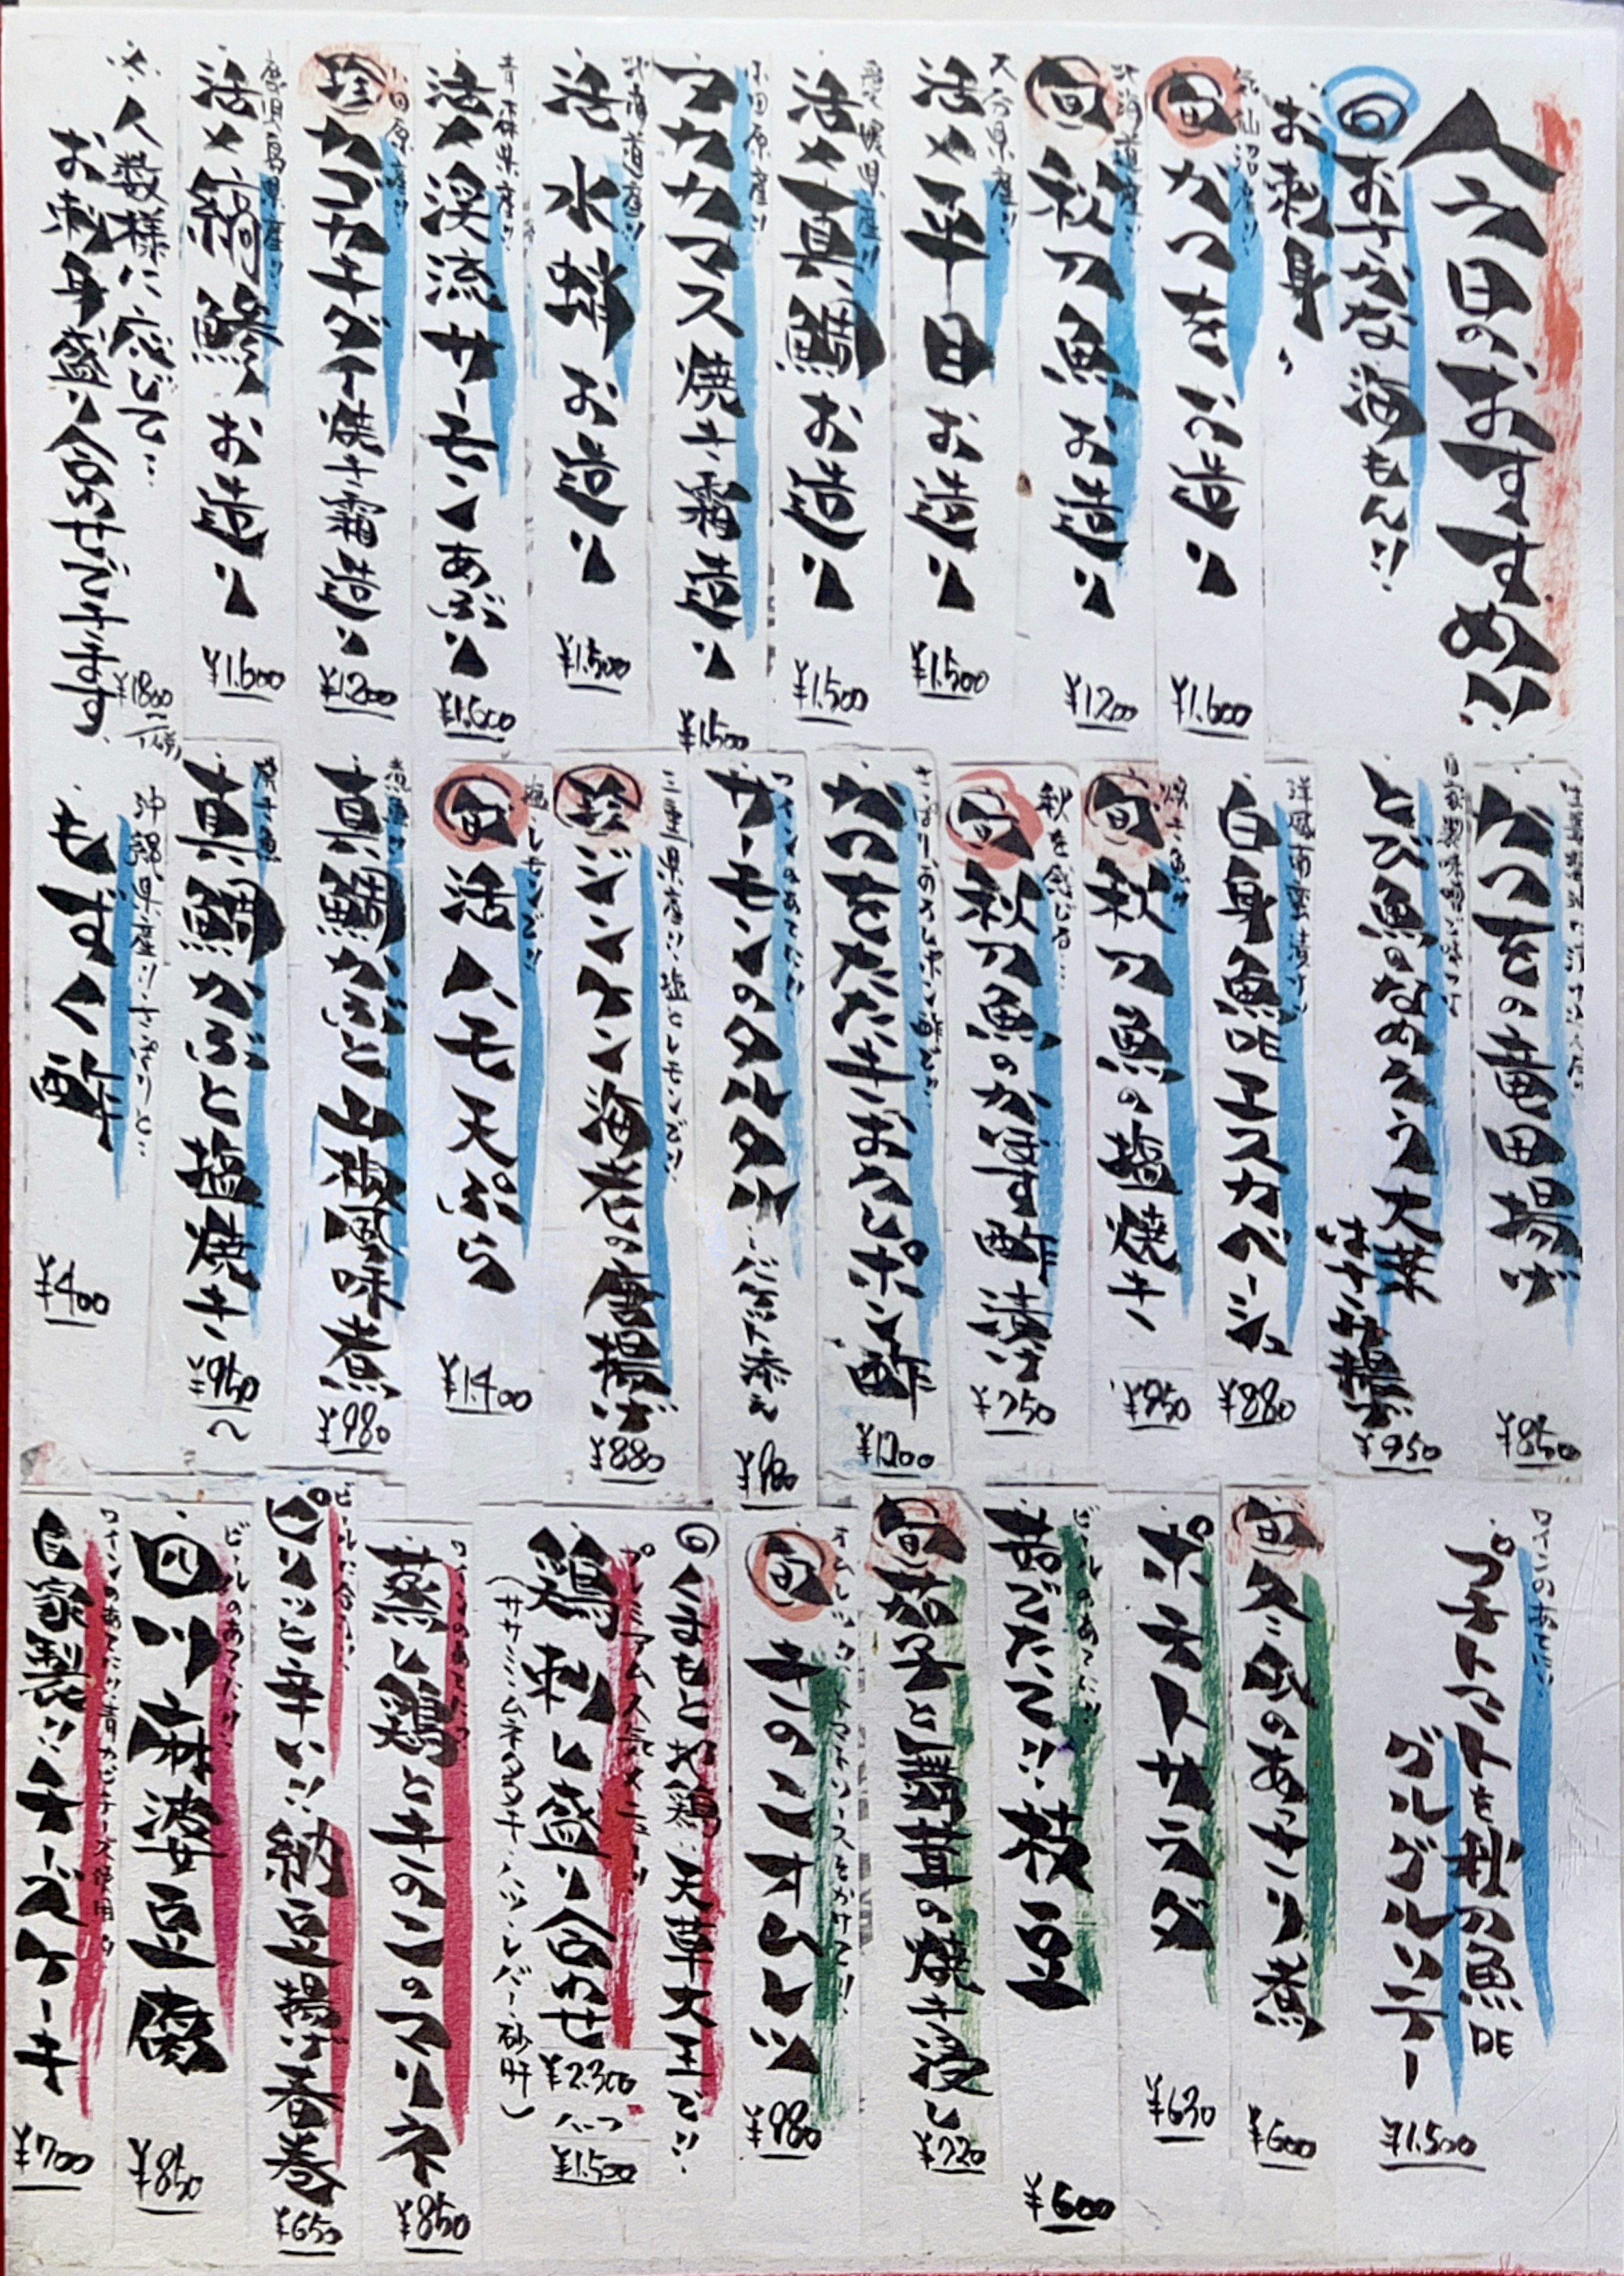 今日のおすすめ!!
◎おさかな海もん!!
お刺身、
気仙沼産!!
旬 かつを お造り
¥1.600
北海道産!!
旬 秋刀魚 お造り
¥1200
大分県産!!
活〆平目 お造り
¥1.500
愛媛県産!!
活〆真鯛 お造り
¥1.500
小田原産!!
アカカマス焼き霜造り
¥1.500
北海道産!!
活 水蛸 お造り
¥1.500
青森県産!!
活〆渓流サーモンあぶり
¥1.600
小田原産!!
珍 カゴカキダイ焼き霜造り
¥1200
鹿児島県産!!
活〆縞鯵 お造り
¥1.600
※人数様に応じて…
お刺身盛り合わせできます
¥1800~/1人前
かつをの竜田揚げ
¥850
自家製味噌で味つけ
とび魚のなめろう大葉
はさみ揚げ
¥950
洋風南蛮漬け!!
白身魚DEエスカベーシュ
¥880
焼き魚!!
旬 秋刀魚の塩焼き
¥850
秋を感じる…
旬 秋刀魚のかぼす酢漬け
¥750
かつをたたきおろしポン酢
¥1200
ワインのあてに!!
サーモンのタルタル
¥980
三重県産!! 塩とレモンで!!
珍 ジンケン海老の唐揚げ
¥880
塩、レモンで!!
旬 活ハモ天ぷら
¥1400
煮魚!!
真鯛かぶと山椒風味煮
¥980
焼き魚
真鯛かぶと塩焼き
¥950~
沖縄県産!!
もずく酢
¥400
ワインのあてに!!
プチトマトと秋刀魚DE
グルグルリエー
¥1.500
旬 冬瓜のあっさり煮
¥600
ポテトサラダ
¥630
ビールのあてに!!
茹でたて!!枝豆
¥600
旬 茄子と舞茸の焼き浸し
¥720
オムレツに、トマトソースをかけて!!
旬 きのこオムレツ
¥980
◎くまもと地鶏 天草大王で!!
プレミアム人気メニュー!!
鶏刺し盛り合わせ
(ササミ・ムネタタキ・ハツ・レバー・砂肝)
¥2.300
ハーフ
¥1.500
ワインのあてに!!
蒸し鶏ときのこのマリネ
¥850
ビールに合う!!
ピリッと辛い!!納豆揚げ春巻
¥650
ビールのあてに!!
四川麻婆豆腐
¥850
ワインのあてに!!青かびチーズ使用
自家製!!チーズケーキ
¥700